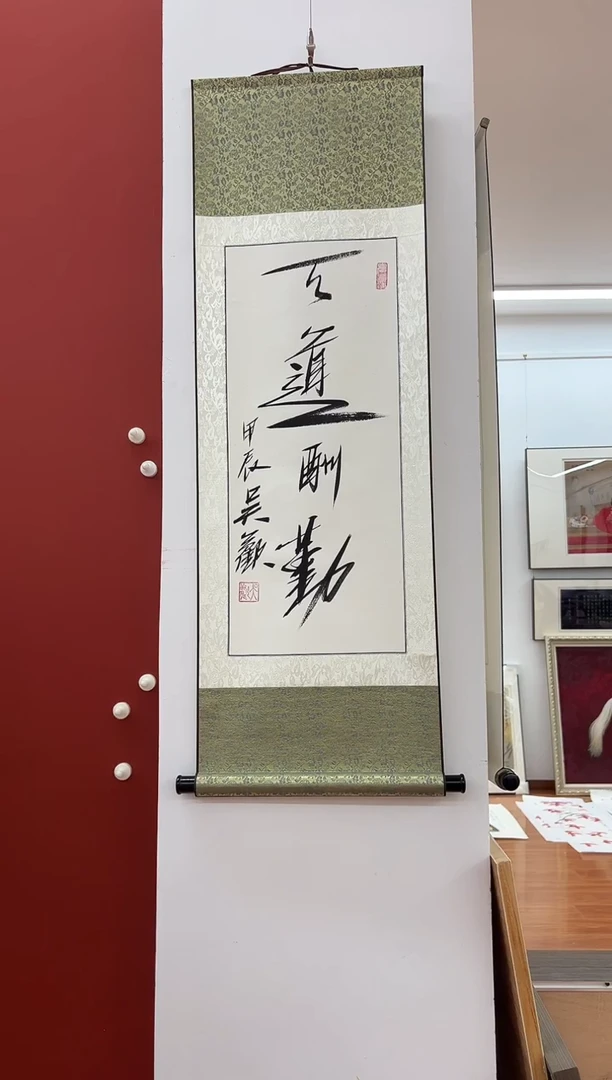 天道酬勤
甲辰吴